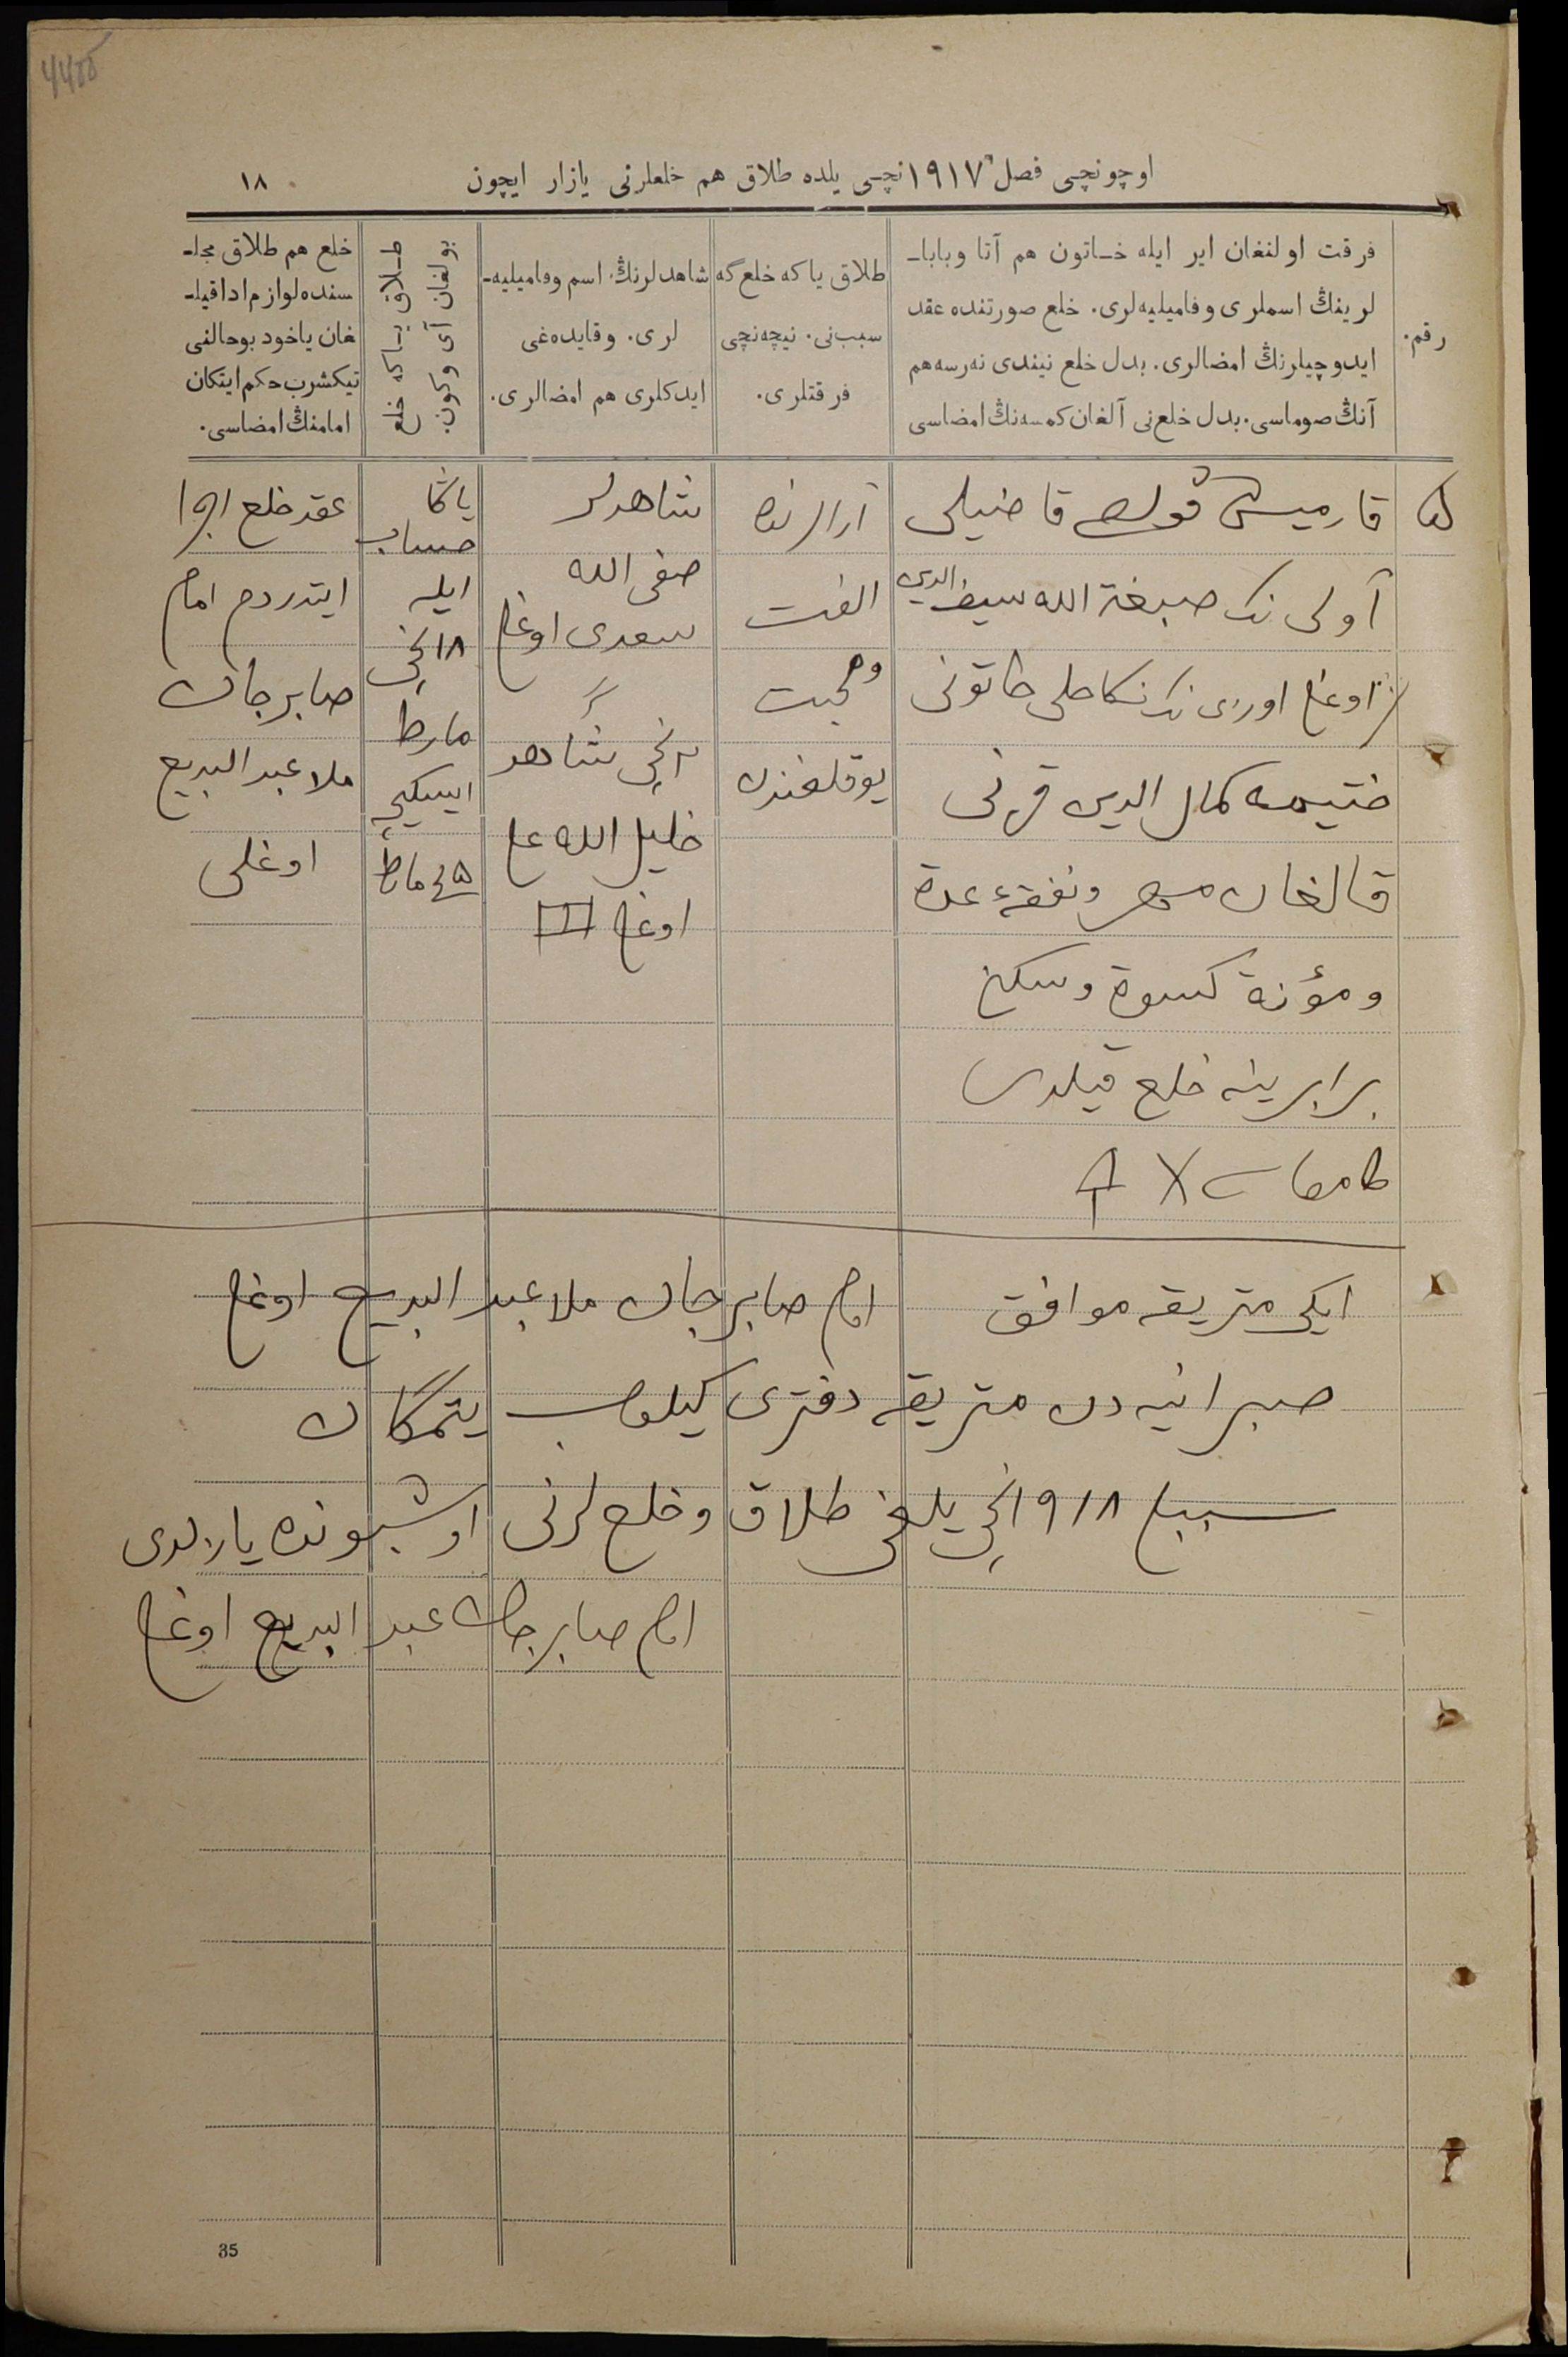 اوچونچی فصل ١٩١٧ نچی یلده طلاق هم خلعلرنی یازار ایچون
١٨
رقم.
فرقت اولنغان ایر ایله خاتون هم آتا وبابا-
لرینڭ اسملری وفامیلیه‌لری. خلع صورتنده عقد
ایدوچیلرنڭ امضالری. بدل خلع نیندی نه‌رسه هم
آنڭ صوماسی. بدل خلع‌نی آلغان کمسه‌نڭ امضاسی
طلاق یا که خلع گه
سبب‌نی. نیچه‌نچی
فرقتلری.
شاهدلرنڭ اسم وفامیلیه-
لری. وقایده‌غی
ایدکلری هم امضالری.
طلاق یا که خلع
بولغان آی وکون.
خلع هم طلاق مجلـ
سنده لوازم ادا قیلـ
غان یاخود بو حالنی
تیکشرب حکم ایتکان
امامنڭ امضاسی.
قارمیش قاضیلی
آولی نک صبغة الله سیف الدین
اوغلی اوزی نک نکاحلی خاتونی
ختیمه کمال الدین قزنی
قالغان مهر ونفقهٔ عدة
ومؤنة کسوة وسکنی
برابرینه خلع قیلدی
طامغاسی X
آرالرنده
الفت
ومحبت
یوقلغندن
شاهدلر
صفی الله
سعدی اوغلی
٢نچی شاهد
خلیل الله
اوغلی
یاڭا
حساب
ایله
١٨نچی
مارط
ایسکیچه
٥نچی مارط
عقد خلع اجرا
ایتدردم امام
صابرجان
ملا عبد البدیع
اوغلی
ایکی متریقه موافق امام صابرجان ملا عبد البدیع اوغلی
صبرانیه دن متریقه دفتری کیلوب یتمکان
سببلی ١٩١٨نچی یلغی طلاق وخلع لرنی اوشبونده یازلدی
امام صابرجان عبد البدیع اوغلی
35